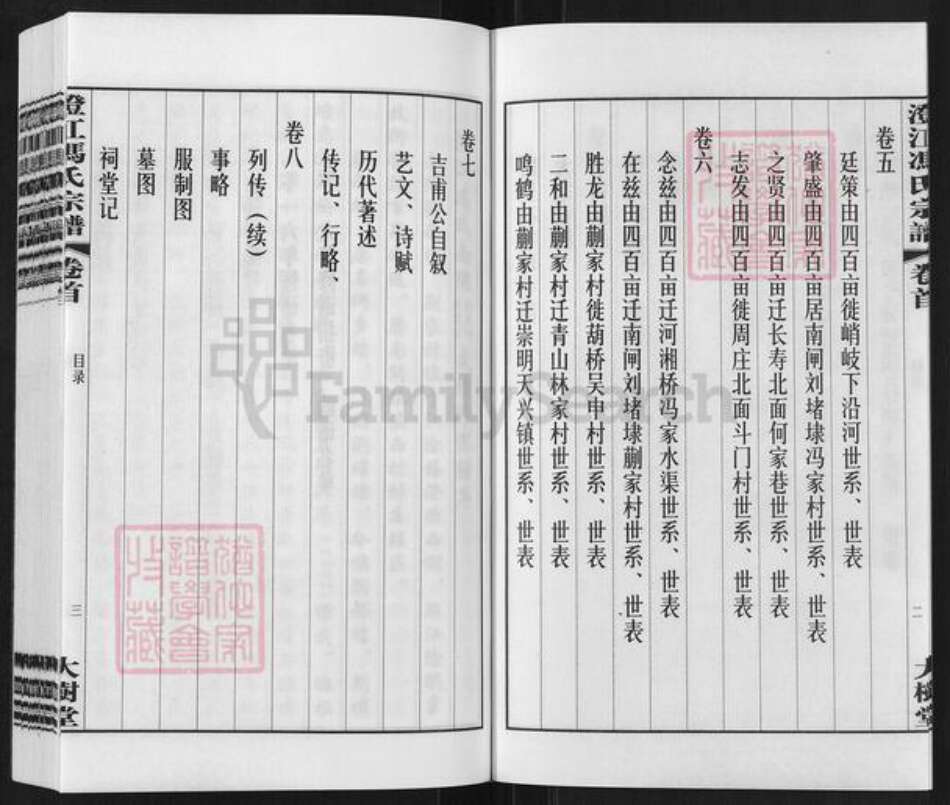 澄江馮氏宗譜
卷首
二
大樹堂
卷五
廷策由四百亩徙峭岐下沿河世系、世表
肇盛由四百亩居南闸刘堵埭冯家村世系、世表
之贤由四百亩迁长寿北面何家巷世系、世表
志发由四百亩徙周庄北面斗门村世系、世表
卷六
念兹由四百亩迁河湘桥冯家水渠世系、世表
在兹由四百亩迁南闸刘堵埭蒯家村世系、世表
胜龙由蒯家村徙葫桥吴申村世系、世表
二和由蒯家村迁青山林家村世系、世表
鸣鹤由蒯家村迁崇明天兴镇世系、世表
卷七
吉甫公自叙
艺文、诗赋
历代著述
传记、行略、
卷八
列传（续）
事略
服制图
墓图
祠堂记
澄江馮氏宗譜
卷首
目录
三
大樹堂
FamilySearch